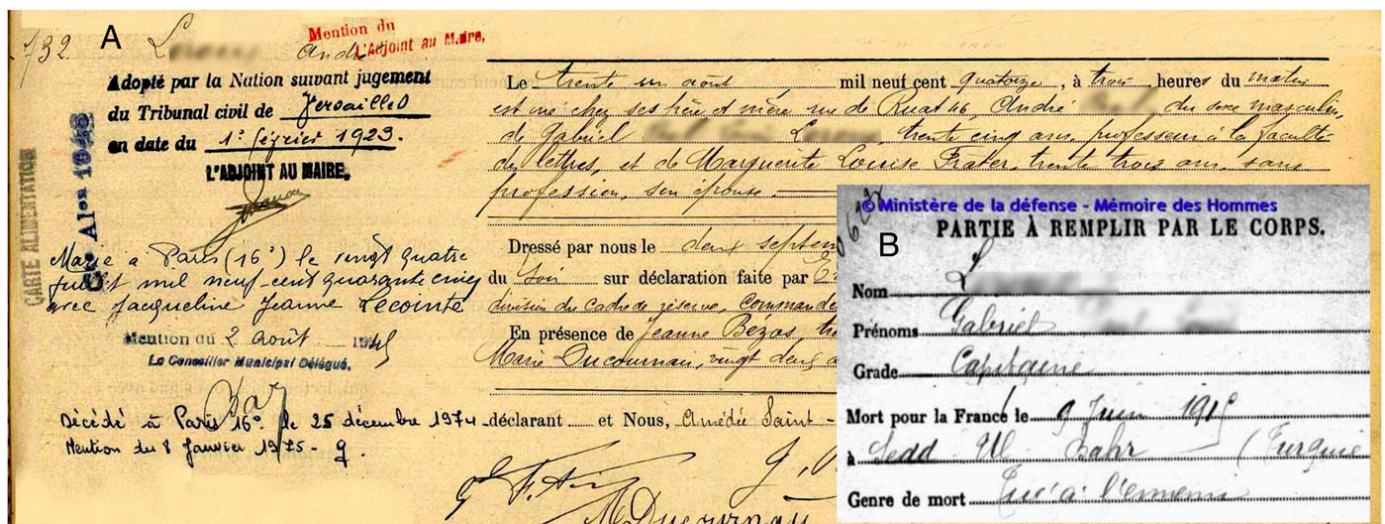 732
A
André
Mention du
L'Adjoint au Maire,
Adopté par la Nation suivant jugement
du Tribunal civil de Versailles
en date du 1er février 1923.
L'ADJOINT AU MAIRE,
CARTE ALIMENTATION
1946
Marié à Paris (16e) le vingt quatre
juillet mil neuf cent quarante cinq
avec Jacqueline Jeanne Lecointe
Mention du 2 août 1945
Le Conseiller Municipal Délégué,
Décédé à Paris 16e le 25 décembre 1974
Mention du 8 Janvier 1975 -
Le trente un août mil neuf cent quatorze, à trois heures du matin
est né chez ses père et mère rue de Ruat 46, André du sexe masculin,
de Gabriel Leroux, trente cinq ans, professeur à la faculté
des lettres, et de Marguerite Louise Frater, trente trois ans, sans
profession, son épouse.
Dressé par nous le deux septem
du soir sur déclaration faite par
division du cadre de réserve, Commande
En présence de Jeanne Bézos, tre
Marie Ducournau, vingt deux a
déclarant et Nous, Amédée Saint-
M Ducournau
© Ministère de la défense - Mémoire des Hommes
B
PARTIE À REMPLIR PAR LE CORPS.
Nom L
Prénoms Gabriel
Grade Capitaine
Mort pour la France le 9 Juin 1915
à Sedd Ul Bahr (Turquie
Genre de mort Tué à l'ennemi